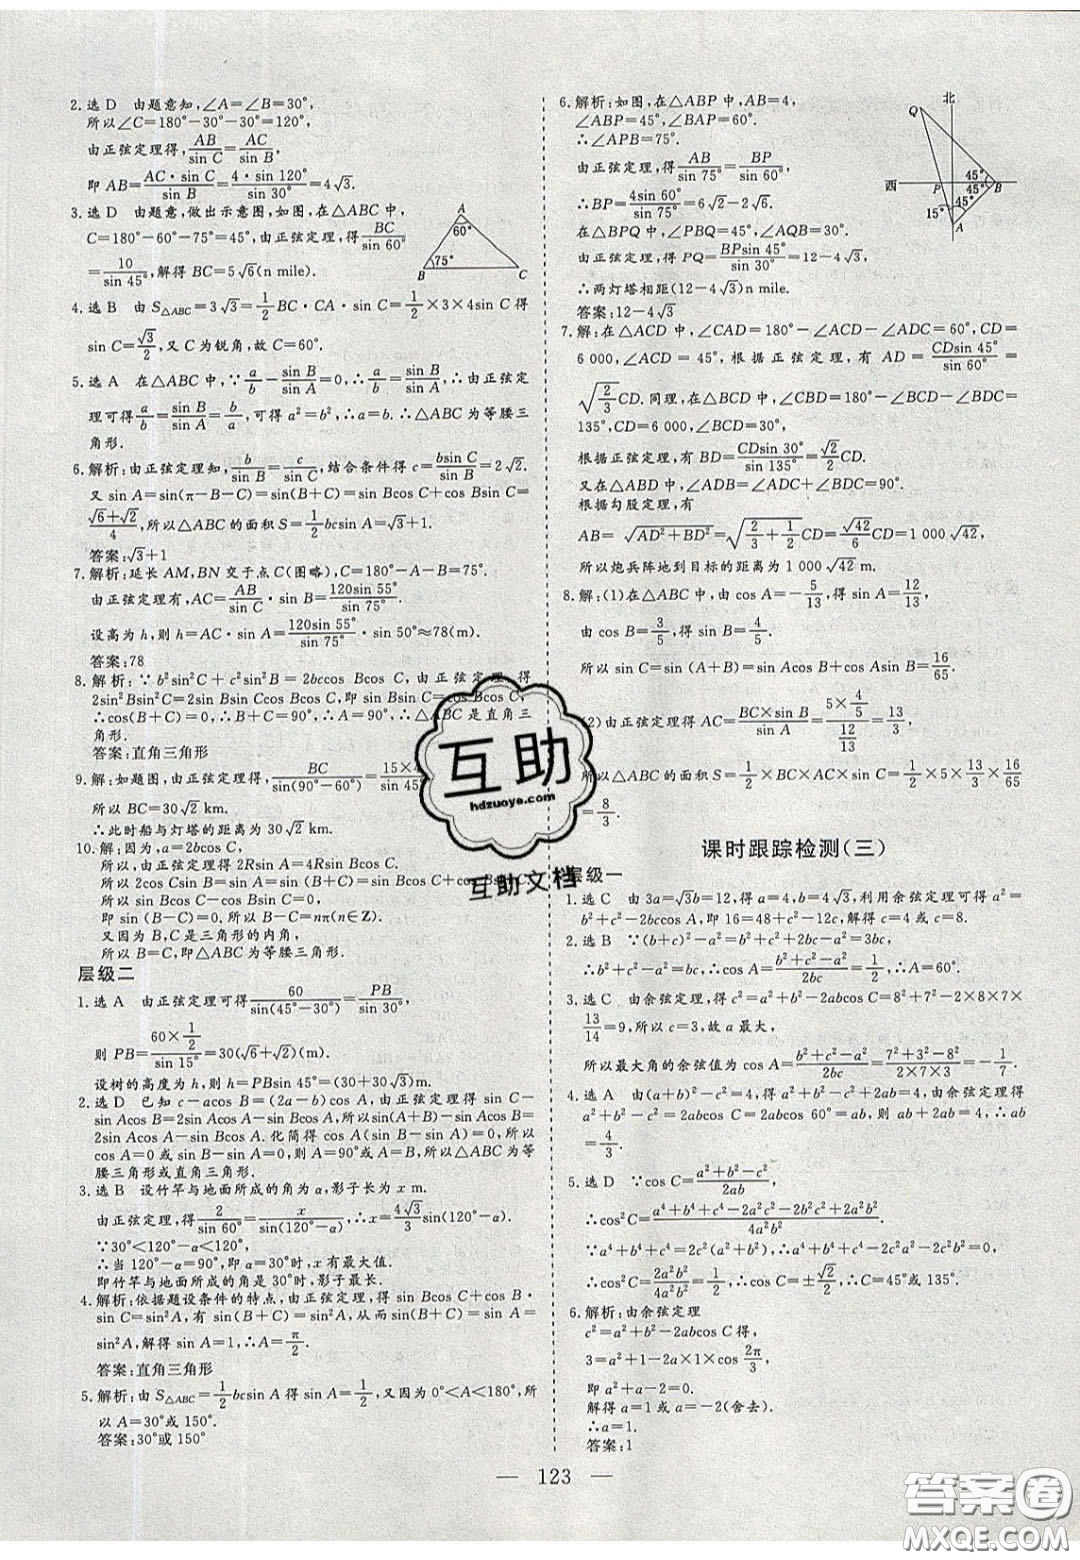 2.选D 由题意知,∠A=∠B=30°,
所以∠C=180°-30°-30°=120°,
由正弦定理得,AB/sin C=AC/sin B,
即 AB=AC·sin C/sin B=4·sin 120°/sin 30°=4√3.
3.选D 由题意,做出示意图,如图,在△ABC中,
C=180°-60°-75°=45°,由正弦定理,得BC/sin 60°
=10/sin 45°,解得 BC=5√6(n mile).
A
60°
75°
B
C
4.选B 由 S△ABC=3√3=1/2BC·CA·sin C=1/2×3×4sin C得
sin C=√3/2,又C为锐角,故C=60°.
5.选A 在△ABC中,∵a/b-sin B/sin A=0,∴a/b=sin B/sin A,∴由正弦定
理可得a/b=sin B/sin A=b/a,可得a²=b²,∴a=b.∴△ABC为等腰三
角形.
6.解析:由正弦定理知,b/sin B=c/sin C,结合条件得c=bsin C/sin B=2√2.
又sin A=sin(π-B-C)=sin(B+C)=sin Bcos C+cos Bsin C=
(√6+√2)/4,所以△ABC的面积S=1/2bcsin A=√3+1.
答案:√3+1
7.解析:延长AM,BN交于点C(图略),C=180°-A-B=75°.
由正弦定理有,AC=AB/sin C·sin B=120sin 55°/sin 75°.
设高为h,则h=AC·sin A=120sin 55°/sin 75°·sin 50°≈78(m).
答案:78
8.解析:∵b²sin²C+c²sin²B=2bccos Bcos C,由正弦定理,得
2sin²Bsin²C=2sin Bsin Ccos Bcos C,即sin Bsin C=cos Bcos C,
∴cos(B+C)=0,∴B+C=90°,∴A=90°,∴△ABC是直角三
角形.
答案:直角三角形
9.解:如题图,由正弦定理得,BC/sin(90°-60°)=15×4/sin 45°
所以 BC=30√2 km.
∴此时船与灯塔的距离为30√2 km.
10.解:因为,a=2bcos C,
所以,由正弦定理得2Rsin A=4Rsin Bcos C.
所以2cos Csin B=sin A=sin(B+C)=sin Bcos C+cos Bsin C.
所以sin Bcos C-cos Bsin C=0,
即sin(B-C)=0.所以B-C=nπ(n∈Z).
又因为B,C是三角形的内角,
所以B=C,即△ABC为等腰三角形.
层级二
1.选A 由正弦定理可得60/sin(45°-30°)=PB/sin 30°,
则PB=60×1/2/sin 15°=30(√6+√2)(m).
设树的高度为h,则h=PBsin 45°=(30+30√3)m.
2.选D 已知c-acos B=(2a-b)cos A,由正弦定理得sin C-
sin Acos B=2sin Acos A-sin Bcos A,所以sin(A+B)-sin Acos B=
2sin Acos A-sin Bcos A.化简得cos A(sin B-sin A)=0,所以
cos A=0或sin B-sin A=0,则A=90°或A=B,故△ABC为等
腰三角形或直角三角形.
3.选B 设竹竿与地面所成的角为α,影子长为x m.
由正弦定理,得2/sin 60°=x/sin(120°-α),∴x=4√3/3sin(120°-α).
∵30°<120°-α<120°,
∴当120°-α=90°,即α=30°时,x有最大值.
即竹竿与地面所成的角是30°时,影子最长.
4.解析:依据题设条件的特点,由正弦定理,得sin Bcos C+cos B·
sin C=sin²A,有sin(B+C)=sin²A,从而sin(B+C)=sin A=
sin²A,解得sin A=1,∴A=π/2.
答案:直角三角形
5.解析:由S△ABC=1/2bcsin A得sin A=1/2,又因为0°<A<180°,所
以A=30°或150°.
答案:30°或150°
6.解析:如图,在△ABP中,AB=4,
∠ABP=45°,∠BAP=60°.
∴∠APB=75°.
由正弦定理,得AB/sin 75°=BP/sin 60°.
∴BP=4sin 60°/sin 75°=6√2-2√6.
在△BPQ中,∠PBQ=45°,∠AQB=30°.
由正弦定理,得PQ=BPsin 45°/sin 30°=12-4√3,
∴两灯塔相距(12-4√3)n mile.
答案:12-4√3
北
Q
西
P
45°
45°
B
15°
A
7.解:在△ACD中,∠CAD=180°-∠ACD-∠ADC=60°,CD=
6 000,∠ACD=45°,根据正弦定理,有AD=CDsin 45°/sin 60°=
√(2/3)CD.同理,在△BCD中,∠CBD=180°-∠BCD-∠BDC=
135°,CD=6 000,∠BCD=30°,
根据正弦定理,有BD=CDsin 30°/sin 135°=√2/2CD.
又在△ABD中,∠ADB=∠ADC+∠BDC=90°.
根据勾股定理,有
AB=√(AD²+BD²)=√(2/3+1/2)CD=√42/6CD=1 000√42,
所以炮兵阵地到目标的距离为1 000√42 m.
8.解:(1)在△ABC中,由cos A=-5/13,得sin A=12/13,
由cos B=3/5,得sin B=4/5.
所以sin C=sin(A+B)=sin Acos B+cos Asin B=16/65.
(2)由正弦定理得AC=BC×sin B/sin A=5×4/5/12/13=13/3,
所以△ABC的面积S=1/2×BC×AC×sin C=1/2×5×13/3×16/65
=8/3.
课时跟踪检测(三)
层级一
1.选C 由3a=√3b=12,得a=4,b=4√3,利用余弦定理可得a²=
b²+c²-2bccos A,即16=48+c²-12c,解得c=4或c=8.
2.选B ∵(b+c)²-a²=b²+c²+2bc-a²=3bc,
∴b²+c²-a²=bc,∴cos A=(b²+c²-a²)/2bc=1/2,∴A=60°.
3.选C 由余弦定理,得c²=a²+b²-2abcos C=8²+7²-2×8×7×
13/14=9,所以c=3,故a最大,
所以最大角的余弦值为cos A=(b²+c²-a²)/2bc=(7²+3²-8²)/2×7×3=-1/7.
4.选A 由(a+b)²-c²=4,得a²+b²-c²+2ab=4,由余弦定理得
a²+b²-c²=2abcos C=2abcos 60°=ab,则ab+2ab=4,∴ab
=4/3.
5.选D ∵cos C=(a²+b²-c²)/2ab,
∴cos²C=(a⁴+b⁴+c⁴-2a²c²-2b²c²+2a²b²)/4a²b².
∵a⁴+b⁴+c⁴=2c²(a²+b²),∴a⁴+b⁴+c⁴-2a²c²-2b²c²=0.
∴cos²C=2a²b²/4a²b²=1/2,∴cos C=±√2/2,∴C=45°或135°.
6.解析:由余弦定理
c²=a²+b²-2abcos C得,
3=a²+1-2a×1×cos 2π/3,
即a²+a-2=0.
解得a=1或a=-2(舍去).
∴a=1.
答案:1
— 123 —
互助
hdzuoye.com
互助文档
答案圈
MXQE.COM